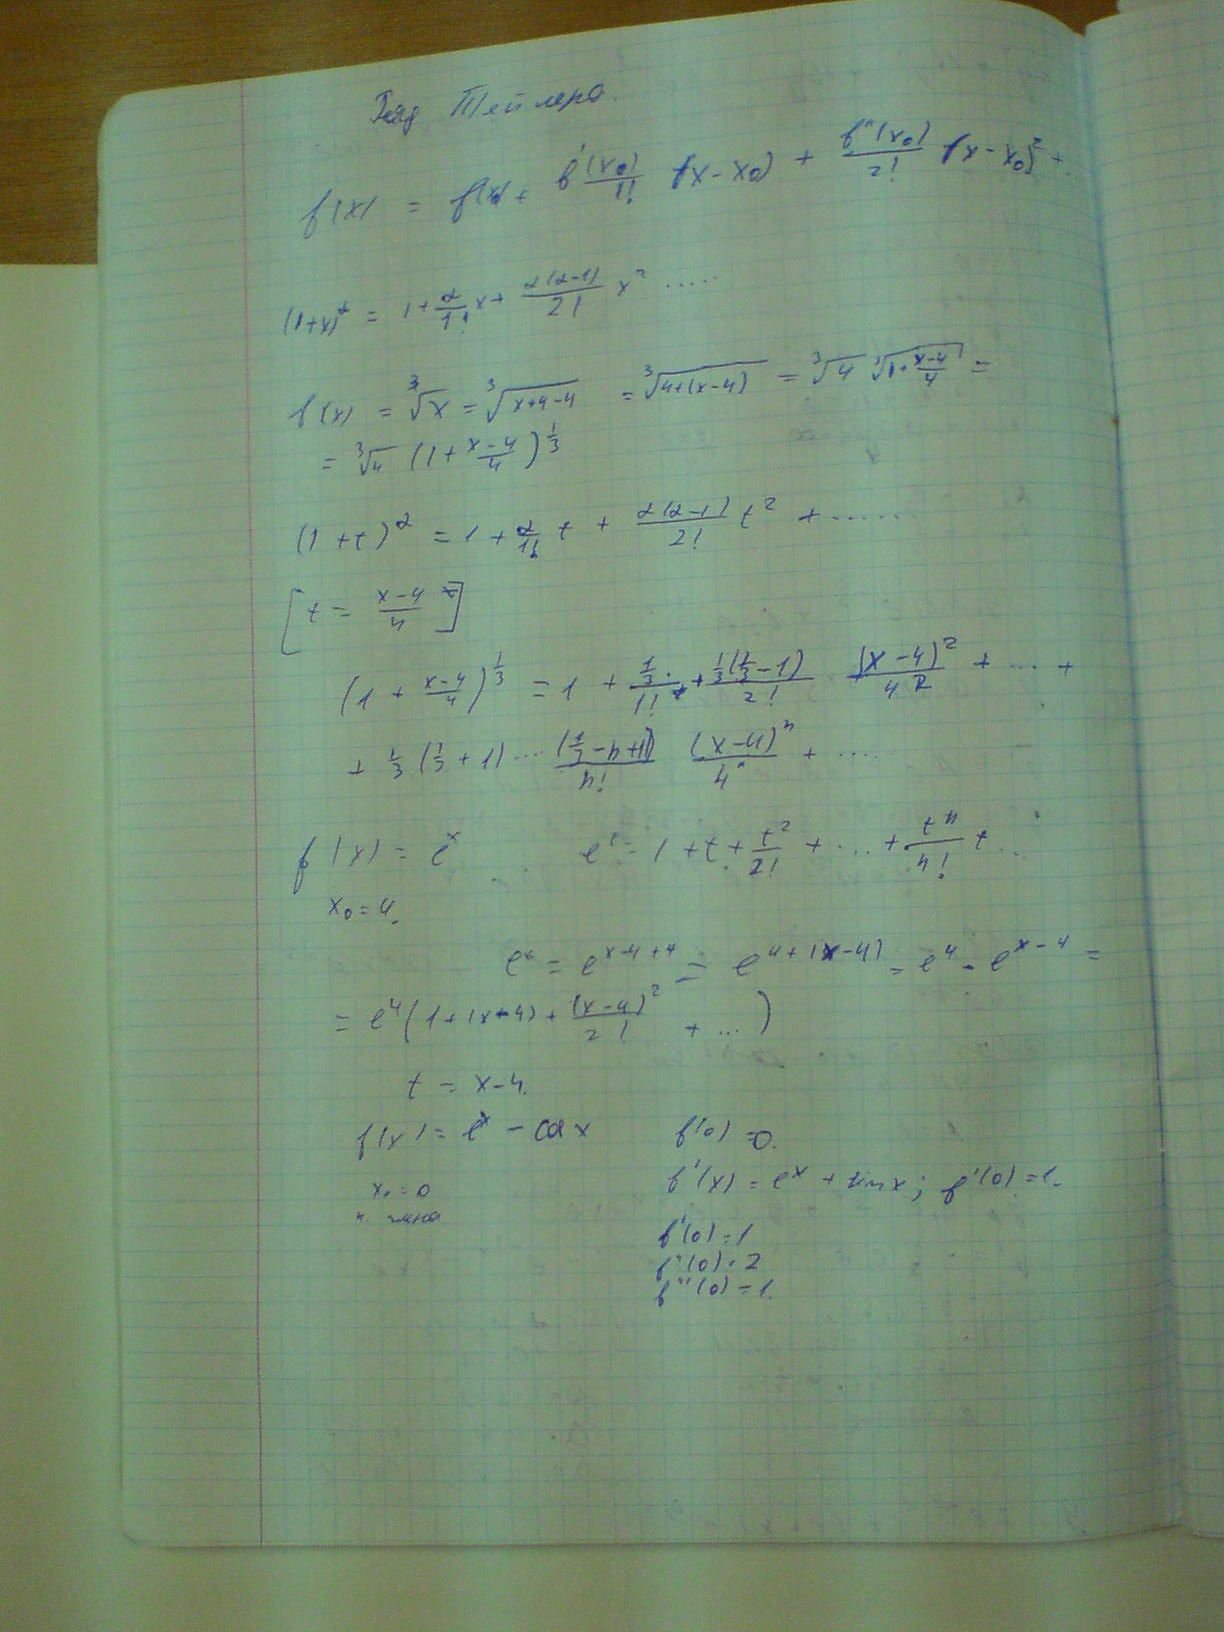 Ряд Тейлора.
f(x) = f(x₀) + f'(x₀)/1! (x-x₀) + f''(x₀)/2! (x-x₀)² + ..
(1+x)^α = 1 + α/1! x + α(α-1)/2! x² .....
f(x) = ∛x = ∛(x+4-4) = ∛(4+(x-4)) = ∛4 ∛(1+(x-4)/4) =
= ∛4 (1+(x-4)/4)^(1/3)
(1+t)^α = 1 + α/1! t + α(α-1)/2! t² + ......
[t = (x-4)/4]
(1 + (x-4)/4)^(1/3) = 1 + (1/3)/1! · + (1/3(1/3-1))/2! (x-4)²/4² + ... +
+ 1/3 (1/3+1) ... (1/3-n+1)/n! (x-4)ⁿ/4ⁿ + ....
f(x) = eˣ eᵗ = 1 + t + t²/2! + ... + tⁿ/n! + ...
x₀ = 4.
eˣ = e^(x-4+4) = e^(4+(x-4)) = e⁴ · e^(x-4) =
= e⁴(1+(x-4)+(x-4)²/2! + ...)
t = x-4.
f(x) = eˣ - cos x f(0) = 0.
x₀ = 0 f'(x) = eˣ + sin x; f'(0) = 1.
члена
f'(0) = 1
f''(0) = 2
f'''(0) = 1.